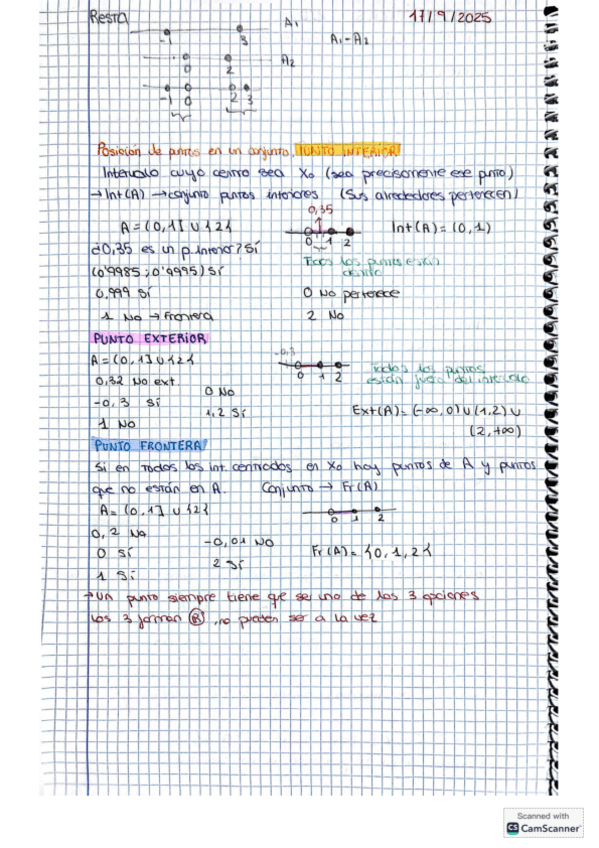 Resta
A₁
17/9/2025
-1
3
A₁-A₂
A₂
0
2
-1 0 2 3
Posición de puntos en un conjunto. PUNTO INTERIOR
Intervalo cuyo centro sea X₀ (sea precisamente ese punto)
→ Int(A) → conjunto puntos interiores (Sus alrededores pertenecen)
0,35
A = (0,1] ∪ {2}
0 1 2
Int(A) = (0,1)
¿0,35 es un p. interior? Sí
Todos los puntos están
dentro
(0'9985; 0'9995) Sí
0,999 Sí
0 No pertenece
1 No → Frontera
2 No
PUNTO EXTERIOR
-0,3
A = (0,1] ∪ {2}
0 1 2
Todos los puntos
están fuera del intervalo
0,32 No ext.
0 No
-0,3 Sí
1,2 Sí
Ext(A) = (-∞,0) ∪ (1,2) ∪
(2,+∞)
1 No
PUNTO FRONTERA
Si en todos los int. centrados en X₀ hay puntos de A y puntos
que no están en A. Conjunto → Fr(A)
A = (0,1] ∪ {2}
0 1 2
0,2 No
-0,01 No
0 Sí
2 Sí
Fr(A) = {0,1,2}
1 Sí
→ Un punto siempre tiene que ser uno de las 3 opciones
Los 3 forman ℝ, no pueden ser a la vez
Scanned with
CS CamScanner